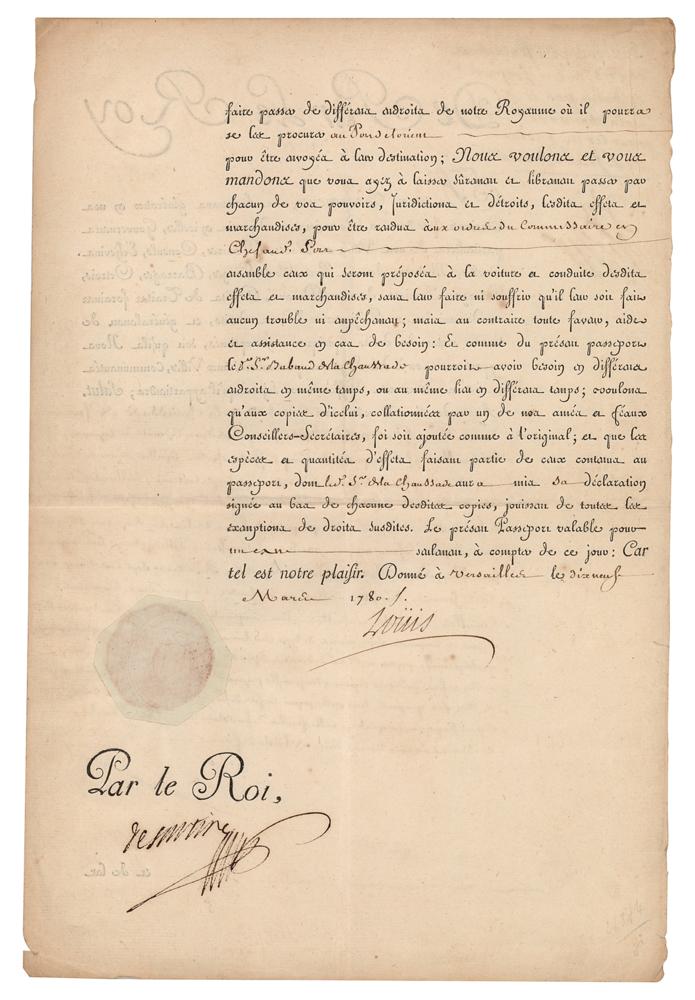 faire passer de différens endroits de notre Royaume où il pourra
se les procurer au Port de
pour être envoyés à leur destination; Nous voulons et vous
mandons que vous ayez à laisser sûrement et librement passer par
chacun de vos pouvoirs, Juridictions et détroits, lesdits effets et
marchandises, pour être rendus aux ordres du Commissaire en
Chef audt. Port
ensemble ceux qui seront préposés à la voiture et conduite desdits
effets et marchandises, sans leur faire ni souffrir qu'il leur soit fait
aucun trouble ni empêchement; mais au contraire toute faveur, aide
et assistance en cas de besoin: Et comme du présent passeport
le d. Sr. Babaud de la Chaussade pourroit avoir besoin en différens
endroits en même temps, ou au même lieu en différens temps; voulons
qu'aux copies d'icelui, collationnées par un de nos amés et féaux
Conseillers-Secrétaires, foi soit ajoutée comme à l'original; et que les
espèces et quantités d'effets faisant partie de ceux contenus au
passeport, dont led. Sr. de la Chaussade aura mis sa déclaration
signée au bas de chacune desdites copies, jouissent de toutes les
exemptions de droits susdites. Le présent Passeport valable pour
un an seulement, à compter de ce jour: Car
tel est notre plaisir. Donné à Versailles le dixneuf
Mars 1780.
Louis
Par le Roi,
de sartine